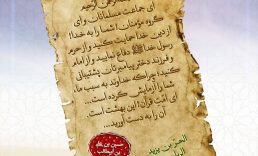 ای جماعت مسلمانان و ای
گروه مؤمنان! شما را به خدا!
از دین خدا حمایت کنید و از حرم
رسول خدا ﷺ دفاع نمایید و از امام
و فرزند دختر پیامبرتان پشتیبانی
کنید؛ چراکه خداوند به سبب ما،
شما را آزمایش کرده است...
ای امت قرآن! این بهشت است.
آن را به دست آورید...
الحر بن یزید